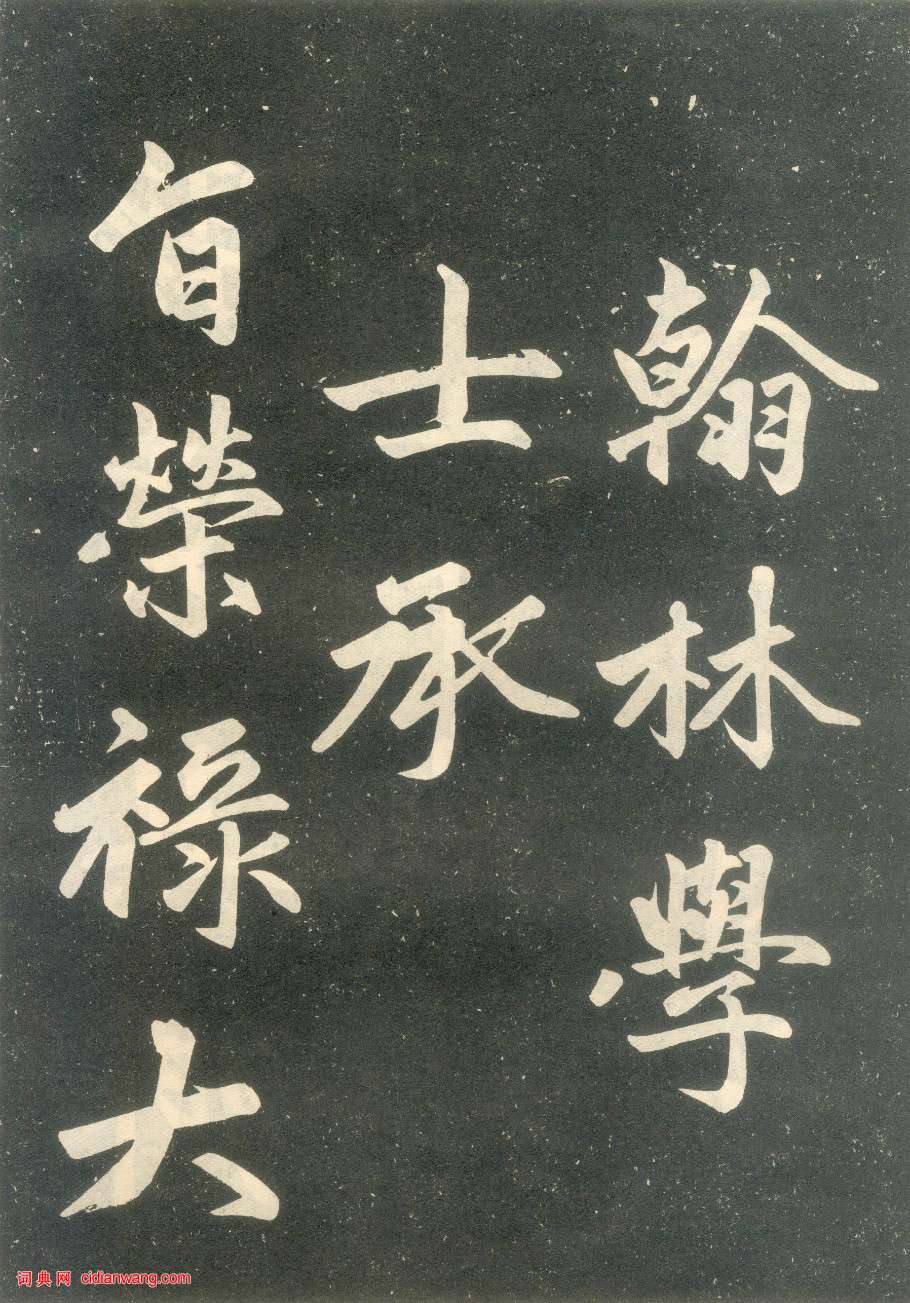 翰林學
士承
旨榮祿大
词典网 cidianwang.com